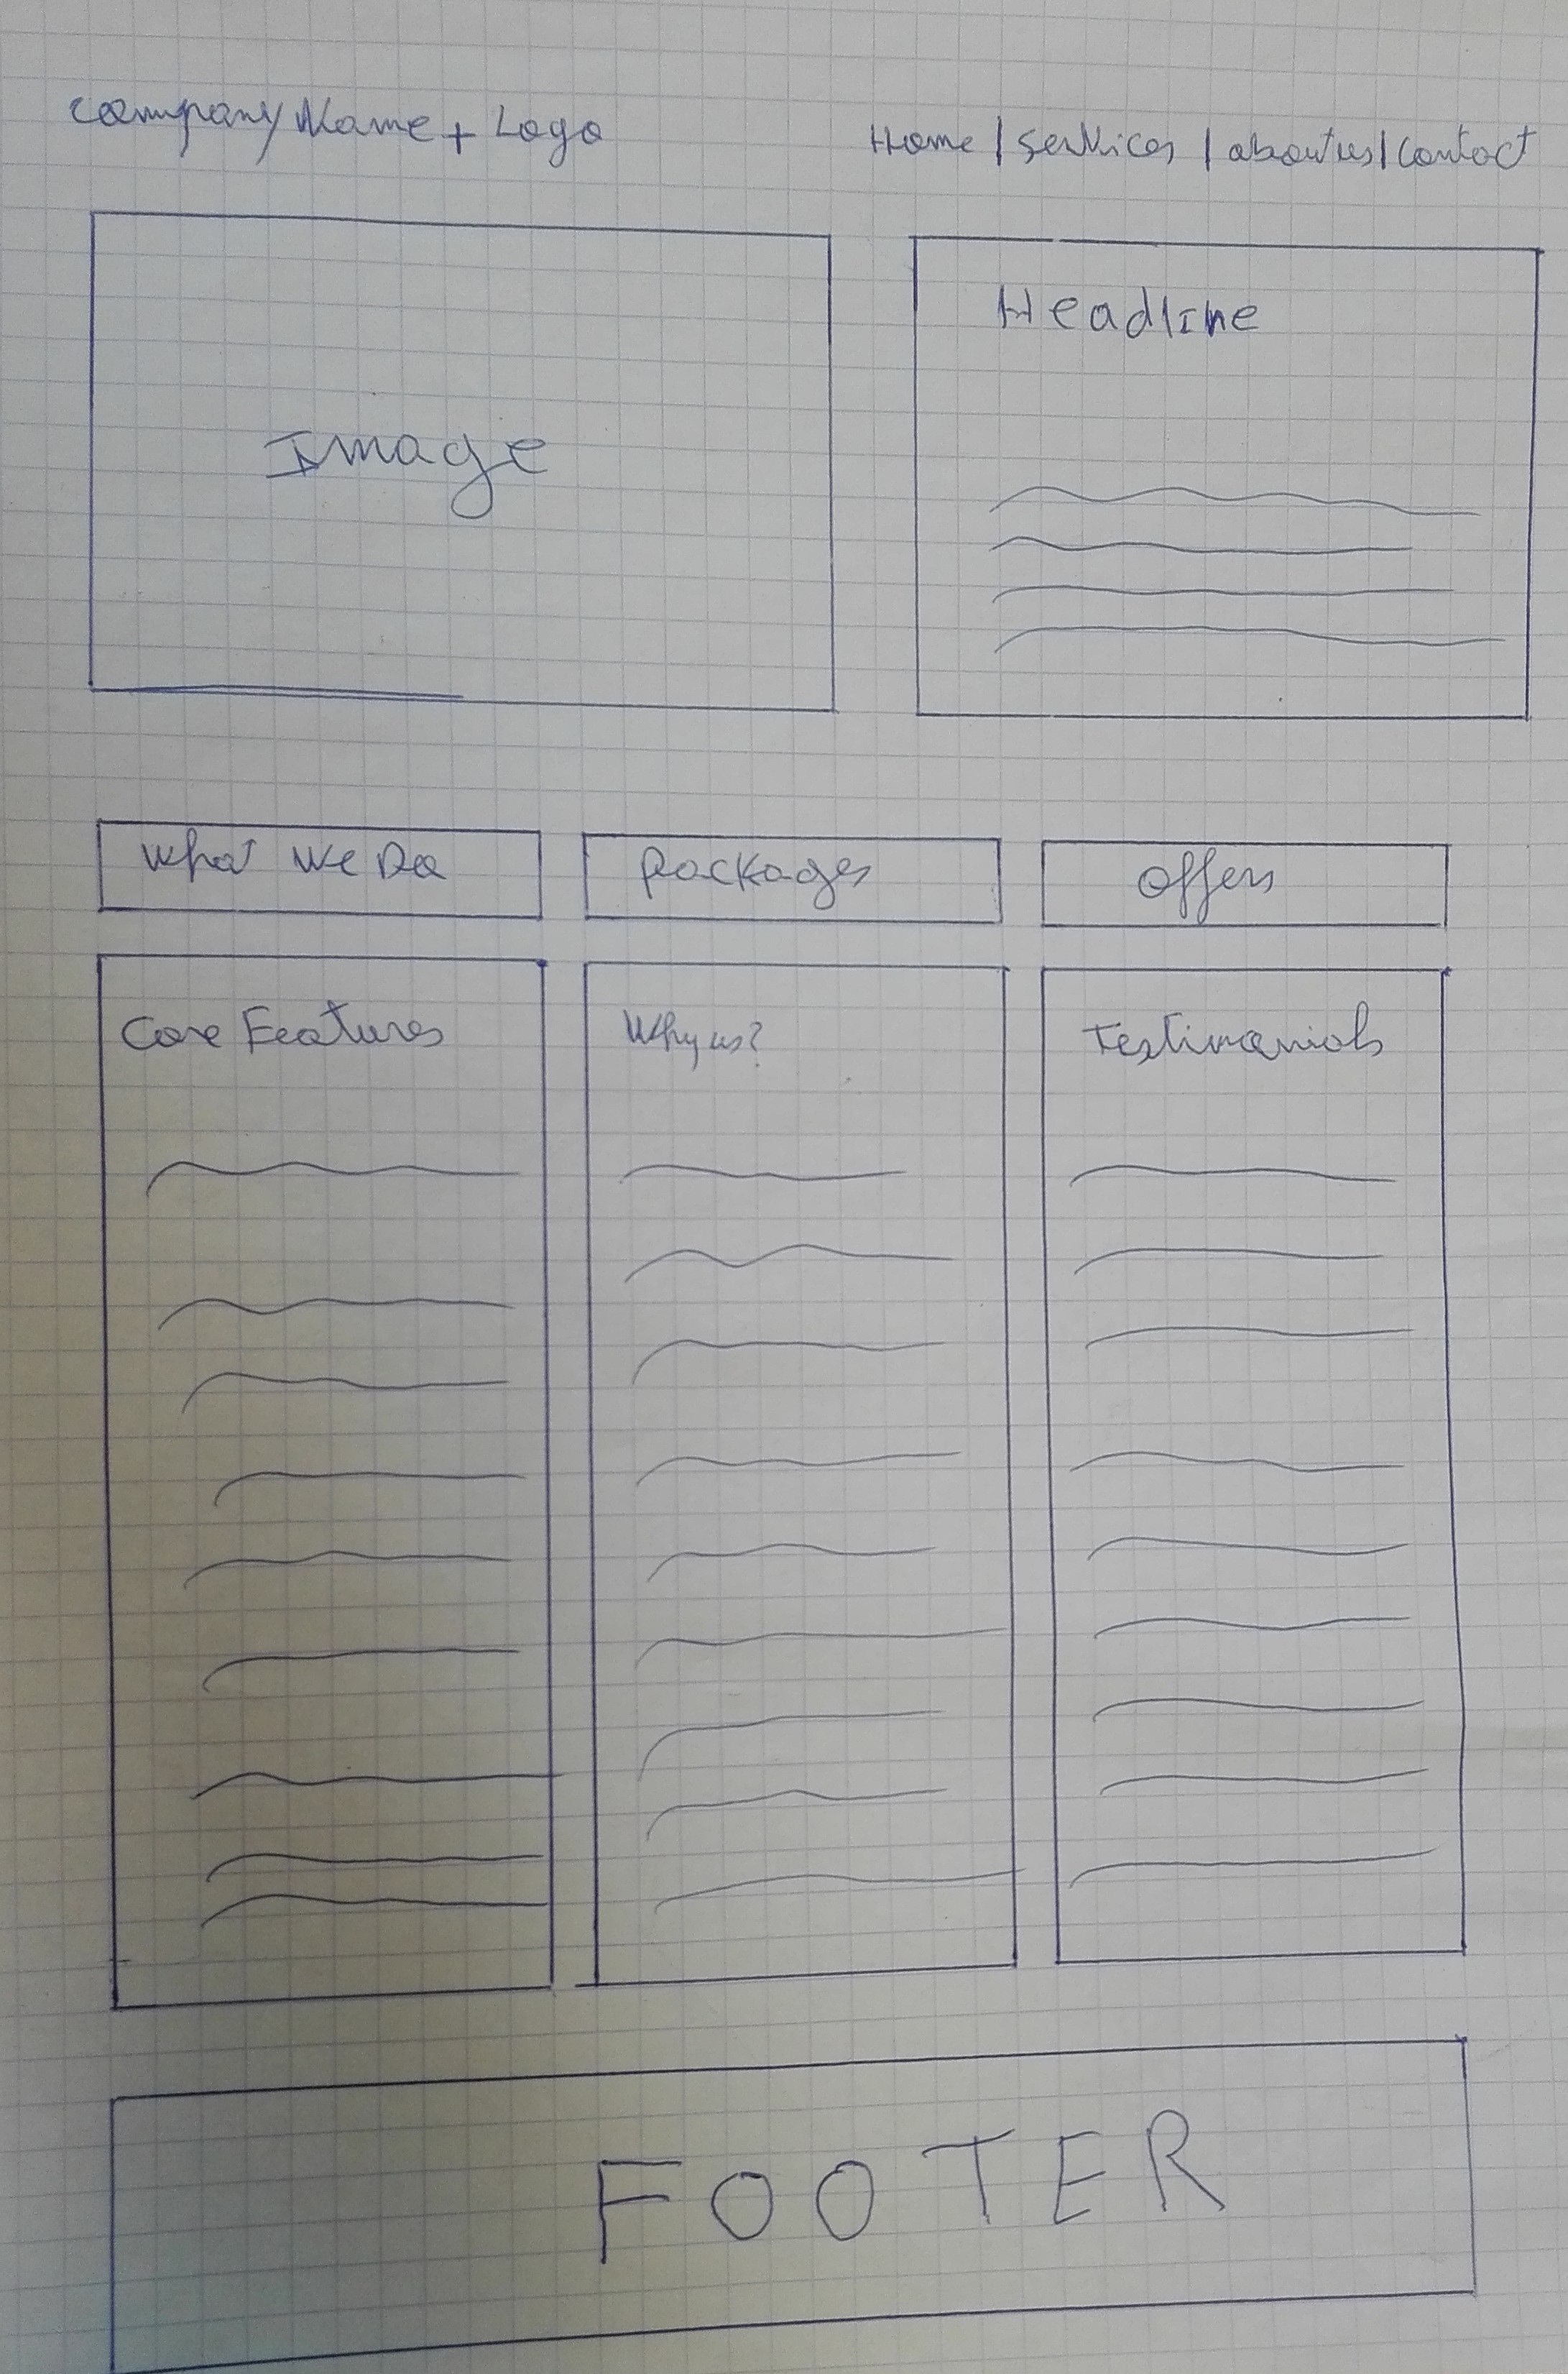 Company Name + Logo
Home | Services | about us | Contact
Image
Headline
What We Do
Packages
Offers
Core Features
Why us?
Testimonials
FOOTER